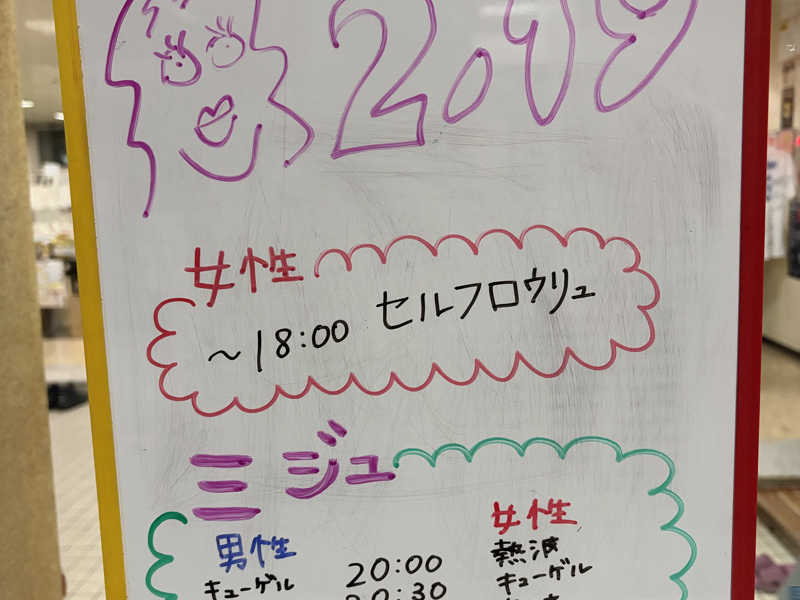 2.19
女性
～18:00 セルフロウリュ
ミジュ
男性 女性
キューゲル 20:00 熱波
20:30 キューゲル